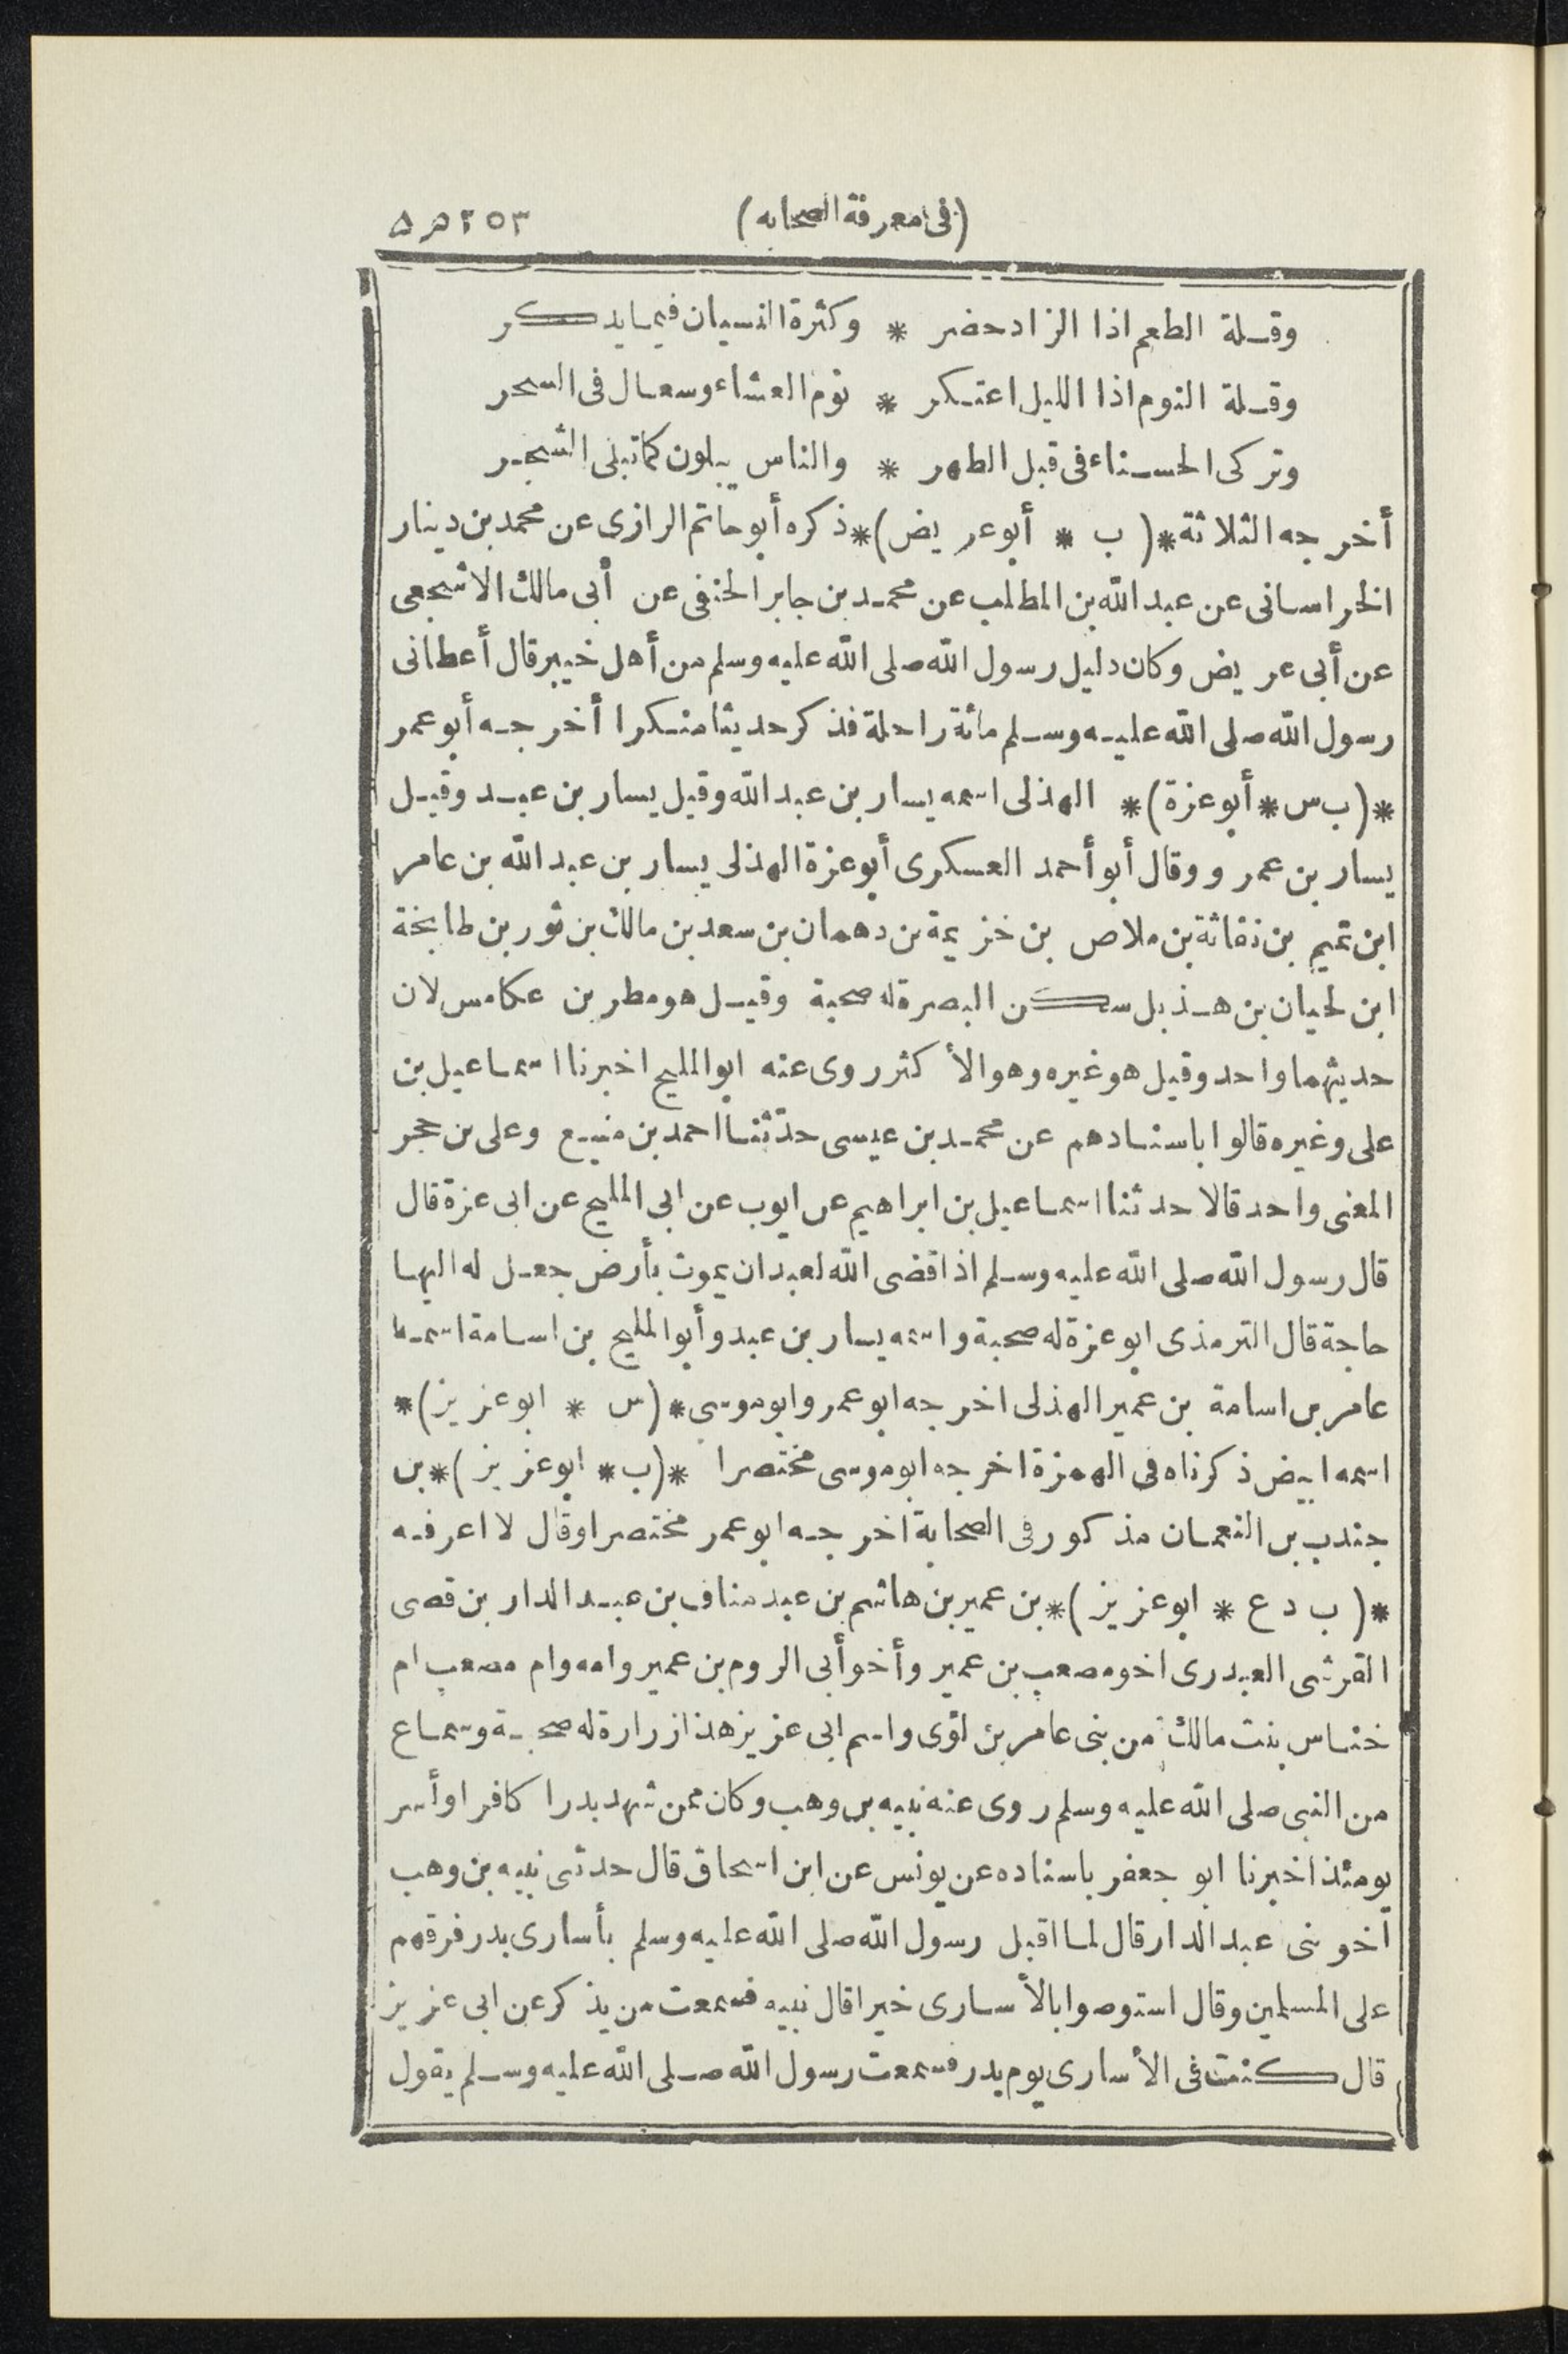 (فى معرفة الصحابه) ٢٥٣
وقلة الطعم اذا الزاد حضر * وكثرة النسيان فيما يدكر
وقلة النوم اذا الليل اعتكر * نوم العشاء وسعال فى السحر
وتركى الحسناء فى قبل الطهر * والناس يبلون كما تبلى الشجر
أخرجه الثلاثة *( ب * أبوعريض)* ذكره أبوحاتم الرازى عن محمد بن دينار
الخراسانى عن عبد الله بن المطلب عن محمد بن جابر الحنفى عن أبى مالك الاشجعى
عن أبى عريض وكان دليل رسول الله صلى الله عليه وسلم من أهل خيبر قال أعطانى
رسول الله صلى الله عليه وسلم مائة راحلة فذكر حديثا منكرا أخرجه أبوعمر
*(ب س * أبوعزة)* الهذلى اسمه يسار بن عبد الله وقيل يسار بن عبد وقيل
يسار بن عمرو وقال أبو أحمد العسكرى أبوعزة الهذلى يسار بن عبد الله بن عامر
ابن تميم بن نفاثة بن ملاص بن خزيمة بن دهمان بن سعد بن مالك بن ثور بن طابخة
ابن لحيان بن هذيل سكن البصرة له صحبة وقيل هو مطر بن عكامس لان
حديثهما واحد وقيل هو غيره وهو الأكثر روى عنه ابو المليح اخبرنا اسماعيل بن
على وغيره قالوا باسنادهم عن محمد بن عيسى حدّثنا احمد بن منيع وعلى بن حجر
المعنى واحد قالا حدثنا اسماعيل بن ابراهيم عن ايوب عن ابى المليح عن ابى عزة قال
قال رسول الله صلى الله عليه وسلم اذا قضى الله لعبد ان يموت بأرض جعل له اليها
حاجة قال الترمذى ابوعزة له صحبة واسمه يسار بن عبد وأبو المليح بن اسامة اسمه
عامر بن اسامة بن عمير الهذلى اخرجه ابوعمر وابوموسى *(س * ابوعزيز)*
اسمه ابيض ذكرناه فى الهمزة اخرجه ابوموسى مختصرا *(ب * ابوعزيز)* بن
جندب بن النعمان مذكور فى الصحابة اخرجه ابوعمر مختصرا وقال لا اعرفه
*( ب د ع * ابوعزيز )* بن عمير بن هاشم بن عبد مناف بن عبد الدار بن قصى
القرشى العبدرى اخو مصعب بن عمير وأخو أبى الروم بن عمير وامه وام مصعب ام
خناس بنت مالك من بنى عامر بن لؤى واسم ابى عزيز هذا زرارة له صحبة وسماع
من النبى صلى الله عليه وسلم روى عنه نبيه بن وهب وكان ممن شهد بدرا كافرا وأسر
يومئذ اخبرنا ابو جعفر باسناده عن يونس عن ابن اسحاق قال حدثنى نبيه بن وهب
أخو بنى عبد الدار قال لما اقبل رسول الله صلى الله عليه وسلم بأسارى بدر فرقهم
على المسلمين وقال استوصوا بالأسارى خيرا قال نبيه فسمعت من يذكر عن ابى عزيز
قال كنت فى الأسارى يوم بدر فسمعت رسول الله صلى الله عليه وسلم يقول